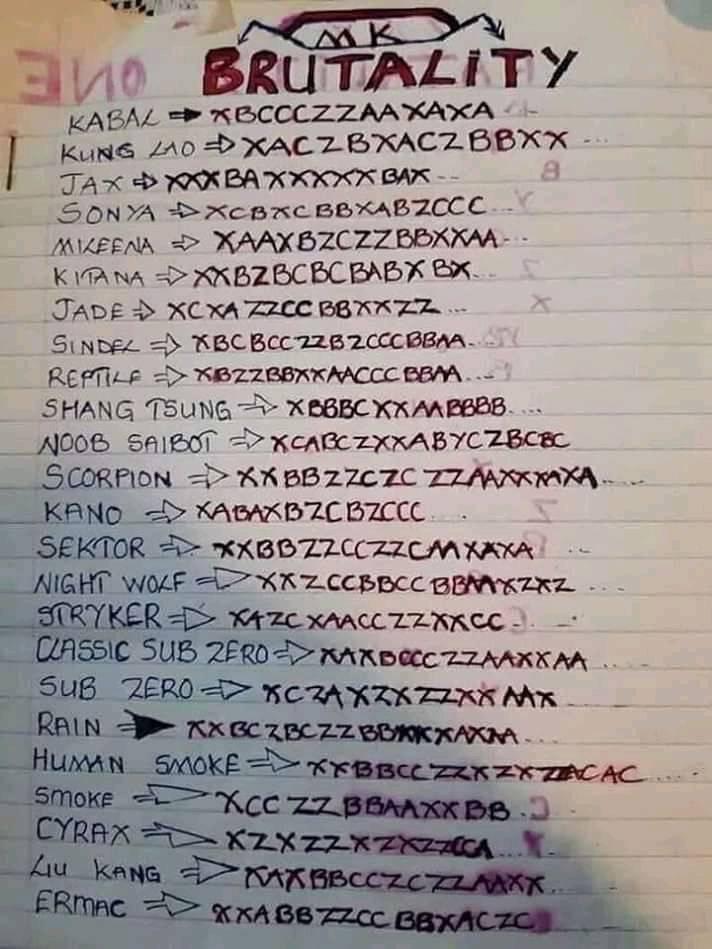 MK
BRUTALITY
KABAL → XBCCCZZAAXAXA
KUNG LAO ⇒ XACZBXACZBBXX ...
JAX ⇒ XXXBAXXXXXBAX ..
SONYA ⇒ XCBXCBBXABZCCC ...
MILEENA ⇒ XAAXBZCZZBBXXAA...
KITANA ⇒ XXBZBCBCBABXBX...
JADE ⇒ XCXAZZCCBBXXZZ ...
SINDEL ⇒ XBCBCCZZBZCCCBBAA...
REPTILE ⇒ XBZZBBXXAACCCBBAA....
SHANG TSUNG ⇒ XBBBCXXAABBBB....
NOOB SAIBOT ⇒ XCABCZXXABYCZBCBC
SCORPION ⇒ XXBBZZCZCZZAAXXXAXA......
KANO ⇒ XABAXBZCBZCCC ...
SEKTOR ⇒ XXBBZZCCZZCAAXAXA ...
NIGHT WOLF ⇒ XXZCCBBCCBBAAXZXZ ...
STRYKER ⇒ XAZCXAACCZZXXCC
CLASSIC SUB ZERO ⇒ XAXBCCCZZAAXXAA ....
SUB ZERO ⇒ XCZAXZXZZXXAAX ...
RAIN → ...
HUMAN SMOKE ⇒ XXBBCCZZXZXZZACAC ......
SMOKE ⇒ XCCZZBBAAXXBB .
CYRAX ⇒ XZXZZXZXZZCCA ...
LIU KANG ⇒ XAXBBCCZCZZAAXX...
ERMAC ⇒ XXABBZZCCBBXACZC